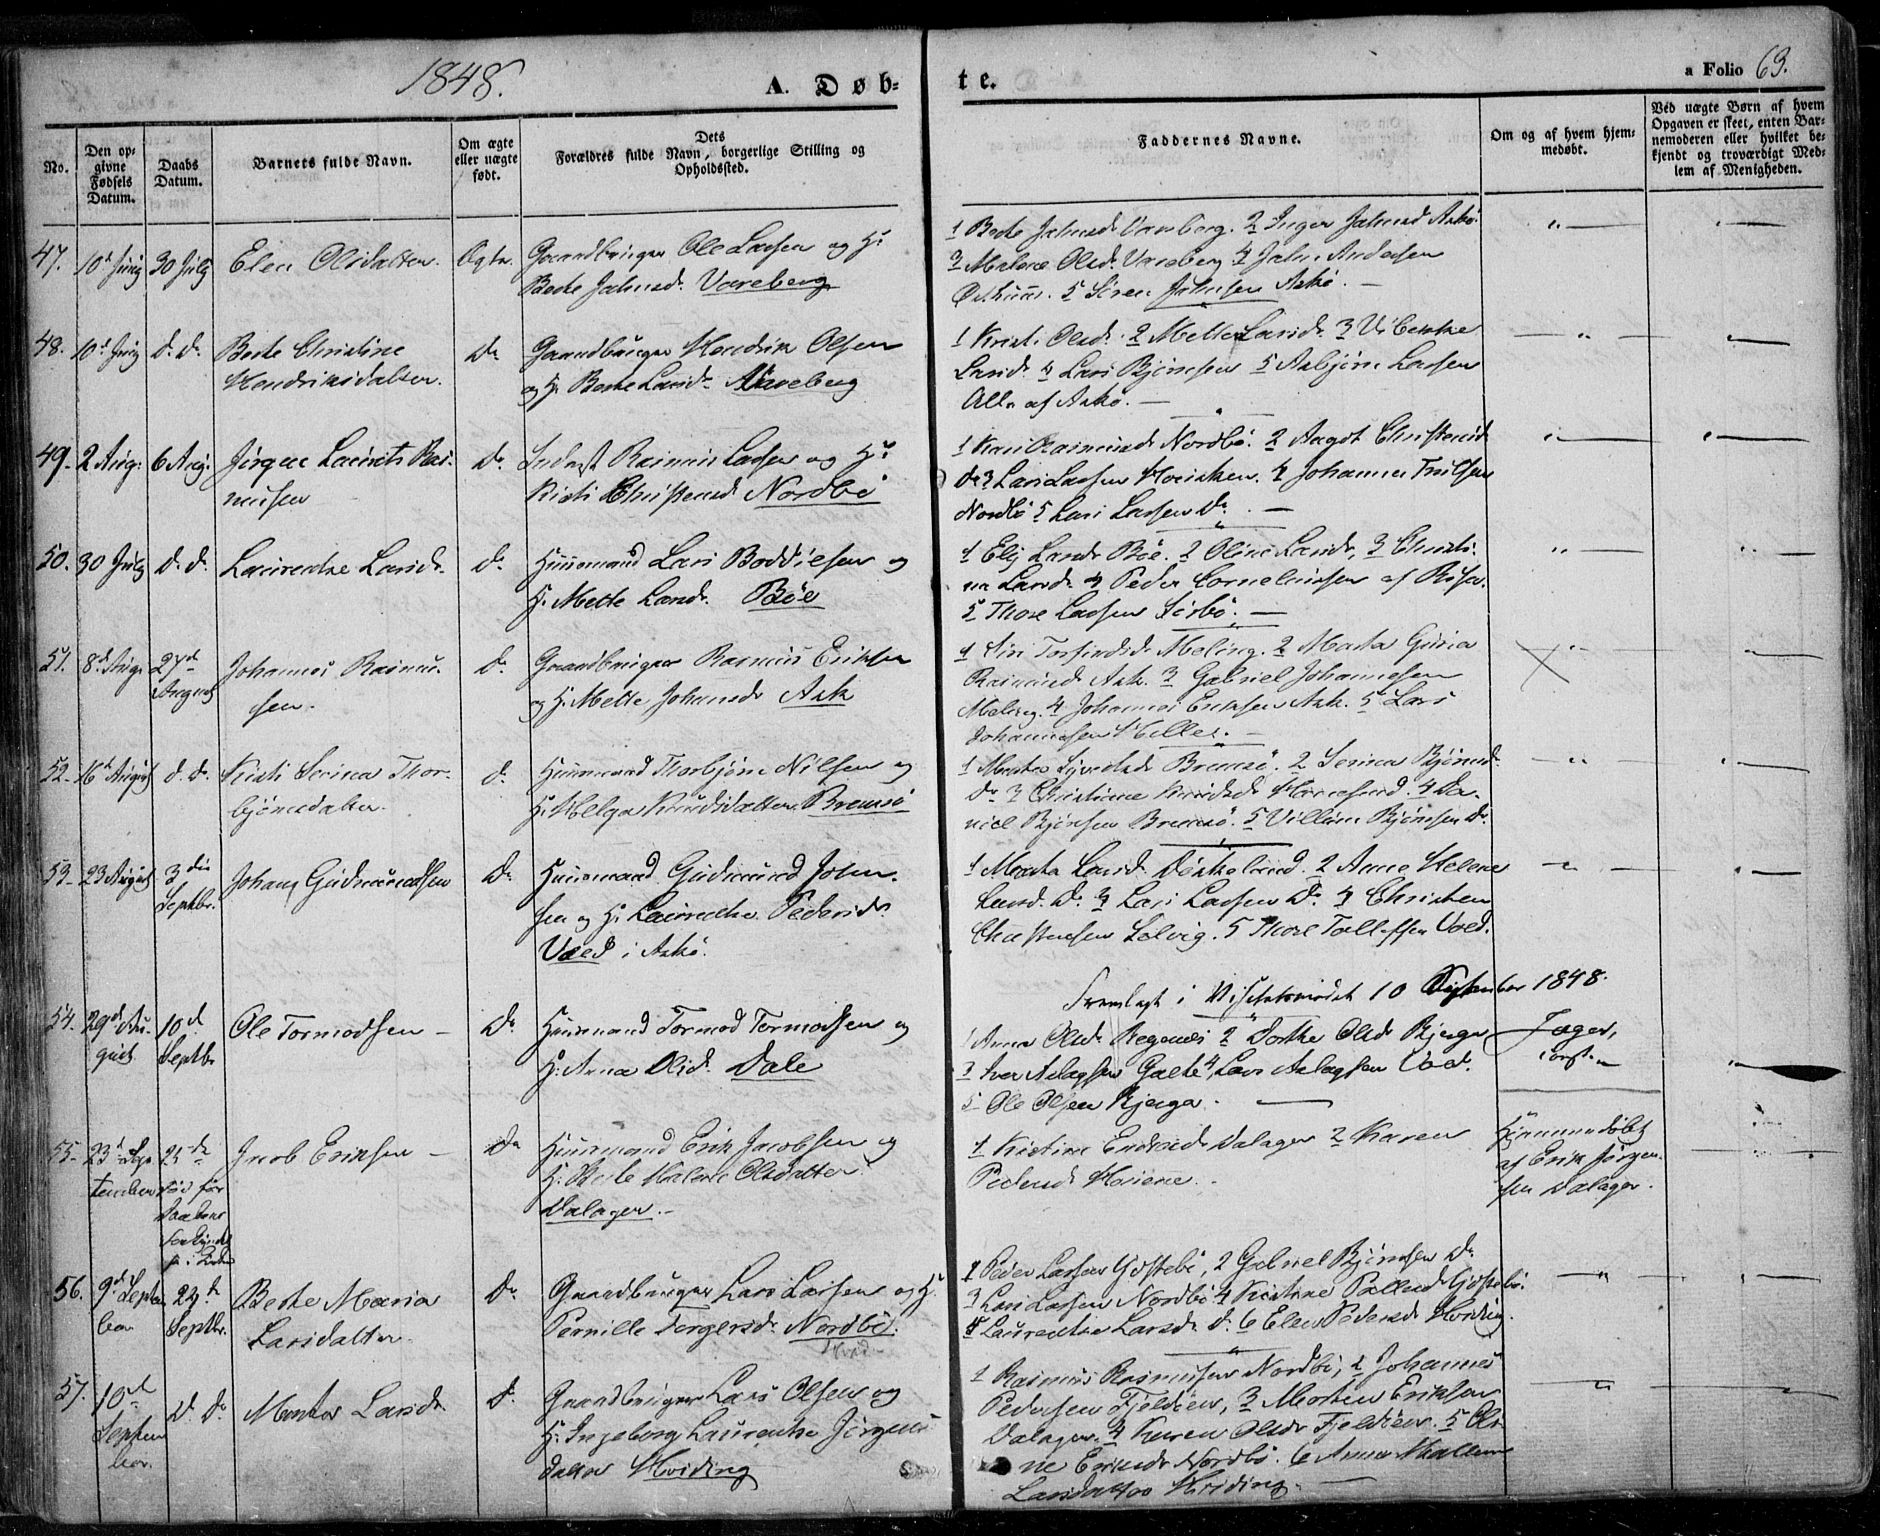 1848.
A. Døb-
te.
a Folio 63.
No.
Den op-
givne
Fødsels
Datum.
Daabs
Datum.
Barnets fulde Navn.
Om ægte
eller uægte
født.
Dets
Forældres fulde Navn, borgerlige Stilling og
Opholdssted.
Faddernes Navne.
Om og af hvem hjem-
medøbt.
Ved uægte Børn af hvem
Opgaven er skeet, enten Bar-
nemoderen eller hvilket be-
kjendt og troværdigt Med-
lem af Menigheden.
47. 10d Juny 30 July Elen Olsdatter Ægte. Gaardbruger Ole Larsen og H:
Berte Jahnsd. Vareberg
1 Berte Jahnsd. Vareberg. 2 Inger Jahnsd Askø.
3 Malene Olsd. Vareberg 4 Jahn Andersen
Østhuus. 5 Sören Jahnsen Askø. —
48. 10d July d. Do Berte Christine
Hendriksdatter.
Do Gaardbruger Hendrik Olsen
og H. Berte Larsd. Vareberg
1 Kristi Olsd. 2 Mette Larsd. 3 Vibekke
Larsd. 4 Lars Bjørnsen 5 Asbjørn Larsen
Alle af Askø. —
49. 2 Aug: 6 Aug: Jørgen Laurits Ras-
mussen
Do Inderst Rasmus Larsen og H:
Kristi Christensd Nordbö
1 Kari Rasmusd Nordbö. 2 Aagot Christensd
Do 3 Lars Larsen 4 Johannes Truelsen
Nordbö 5 Lars Larsen Do. —
50. 30 July d. d. Laurentse Larsd. d. Huusmand Lars Boddielsen og
H. Mette Larsd. Böe
1 Elij Larsd. Böe. 2 Oline Larsd. 3 Christi-
ne Larsd. 4 Peder Corneliussen af
5 Thore Larsen Sörbö. —
51. 8d Aug. 27d
August
Johannes Rasmus-
sen.
d. Gaardbruger Rasmus Eriksen
og H. Mette Johansd. Ask
1 Siri Torfindsd. Meling. 2 Marta Guria
Rasmusd Ask. 3 Gabriel Johannesen
Meling. 4 Johannes Eriksen Ask. 5 Lars
Johannesen Helle. —
52. 16d August d. Do Kristi Serina Thor-
björnsdatter.
d. Huusmand Thorbjörn Nilsen og
H. Helga Knudsdatter Bremsö
1 Marta Bremsö. 2 Serina Bjørnsd.
Do 3 Christiane Knudsd. 4 Da-
niel Bjørnsen Bremsö. 5 Villum Bjørnsen Do.
53. 23 August 3die
Septbr.
Johan Gudmundsen Do Huusmand Gudmund John-
sen og H: Laurentse Pedersd.
Voled i Askø.
1 Marta Larsd. 2 Anne Helene
Larsd. D. 3 Lars Larsen D. 4 Christen
Christensen Solvig. 5 Thore Tolleffsen Voled.
Fremlagt i Visitatsmødet 10 September 1848.
54. 29d Au-
gust
10d
Septbr
Ole Tormodsen — Do Huusmand Tormod Tormodsen og
H. Anna Olsd. Dale
1 Anna Olsd. 2 Dorthe Olsd Bjerga
3 Iver Aslagsen Galte 4 Lars Aslagsen Voled.
5 Ole Olsen Bjerga. —
Jæger,
55. 23d Sep-
tember
25de
død før
Daabens
Jacob Eriksen — Do Huusmand Erik Jacobsen og
H. Berte Malene Olsdatter
Dalager. —
1 Kistine Endresd Dalager 2 Karen
Pedersd
Hjemmedöbt
af Erik Jörgen-
sen Dalager.
56. 9d Septem-
ber
24d
Septbr.
Berte Maria
Larsdatter
Do Gaardbruger Lars Larsen og H.
Pernille Torgersd. Nordbö.
1 Peder Larsen 2 Gabriel Bjørnsen Do.
3 Lars Larsen Nordbö 4 Kistine
5 Laurentse Larsd. d. 6 Elen Pedersd. Hviding.
57. 10d
Septem-
ber.
d. Do Marta Larsd. d. Gaardbruger Lars Olsen og
H. Ingeborg Laurentse Jörgens-
datter Hviding
1 Rasmus Rasmussen Nordbö, 2 Johannes
Pedersen Fjeldöen, 3 Morten Eriksen
Dalager. 4 Karen Olsd. Fjeldöen. 5 Oli-
ne Eriksd. Nordbö. 6 Anna Mallene
Larsdatter Hviding.